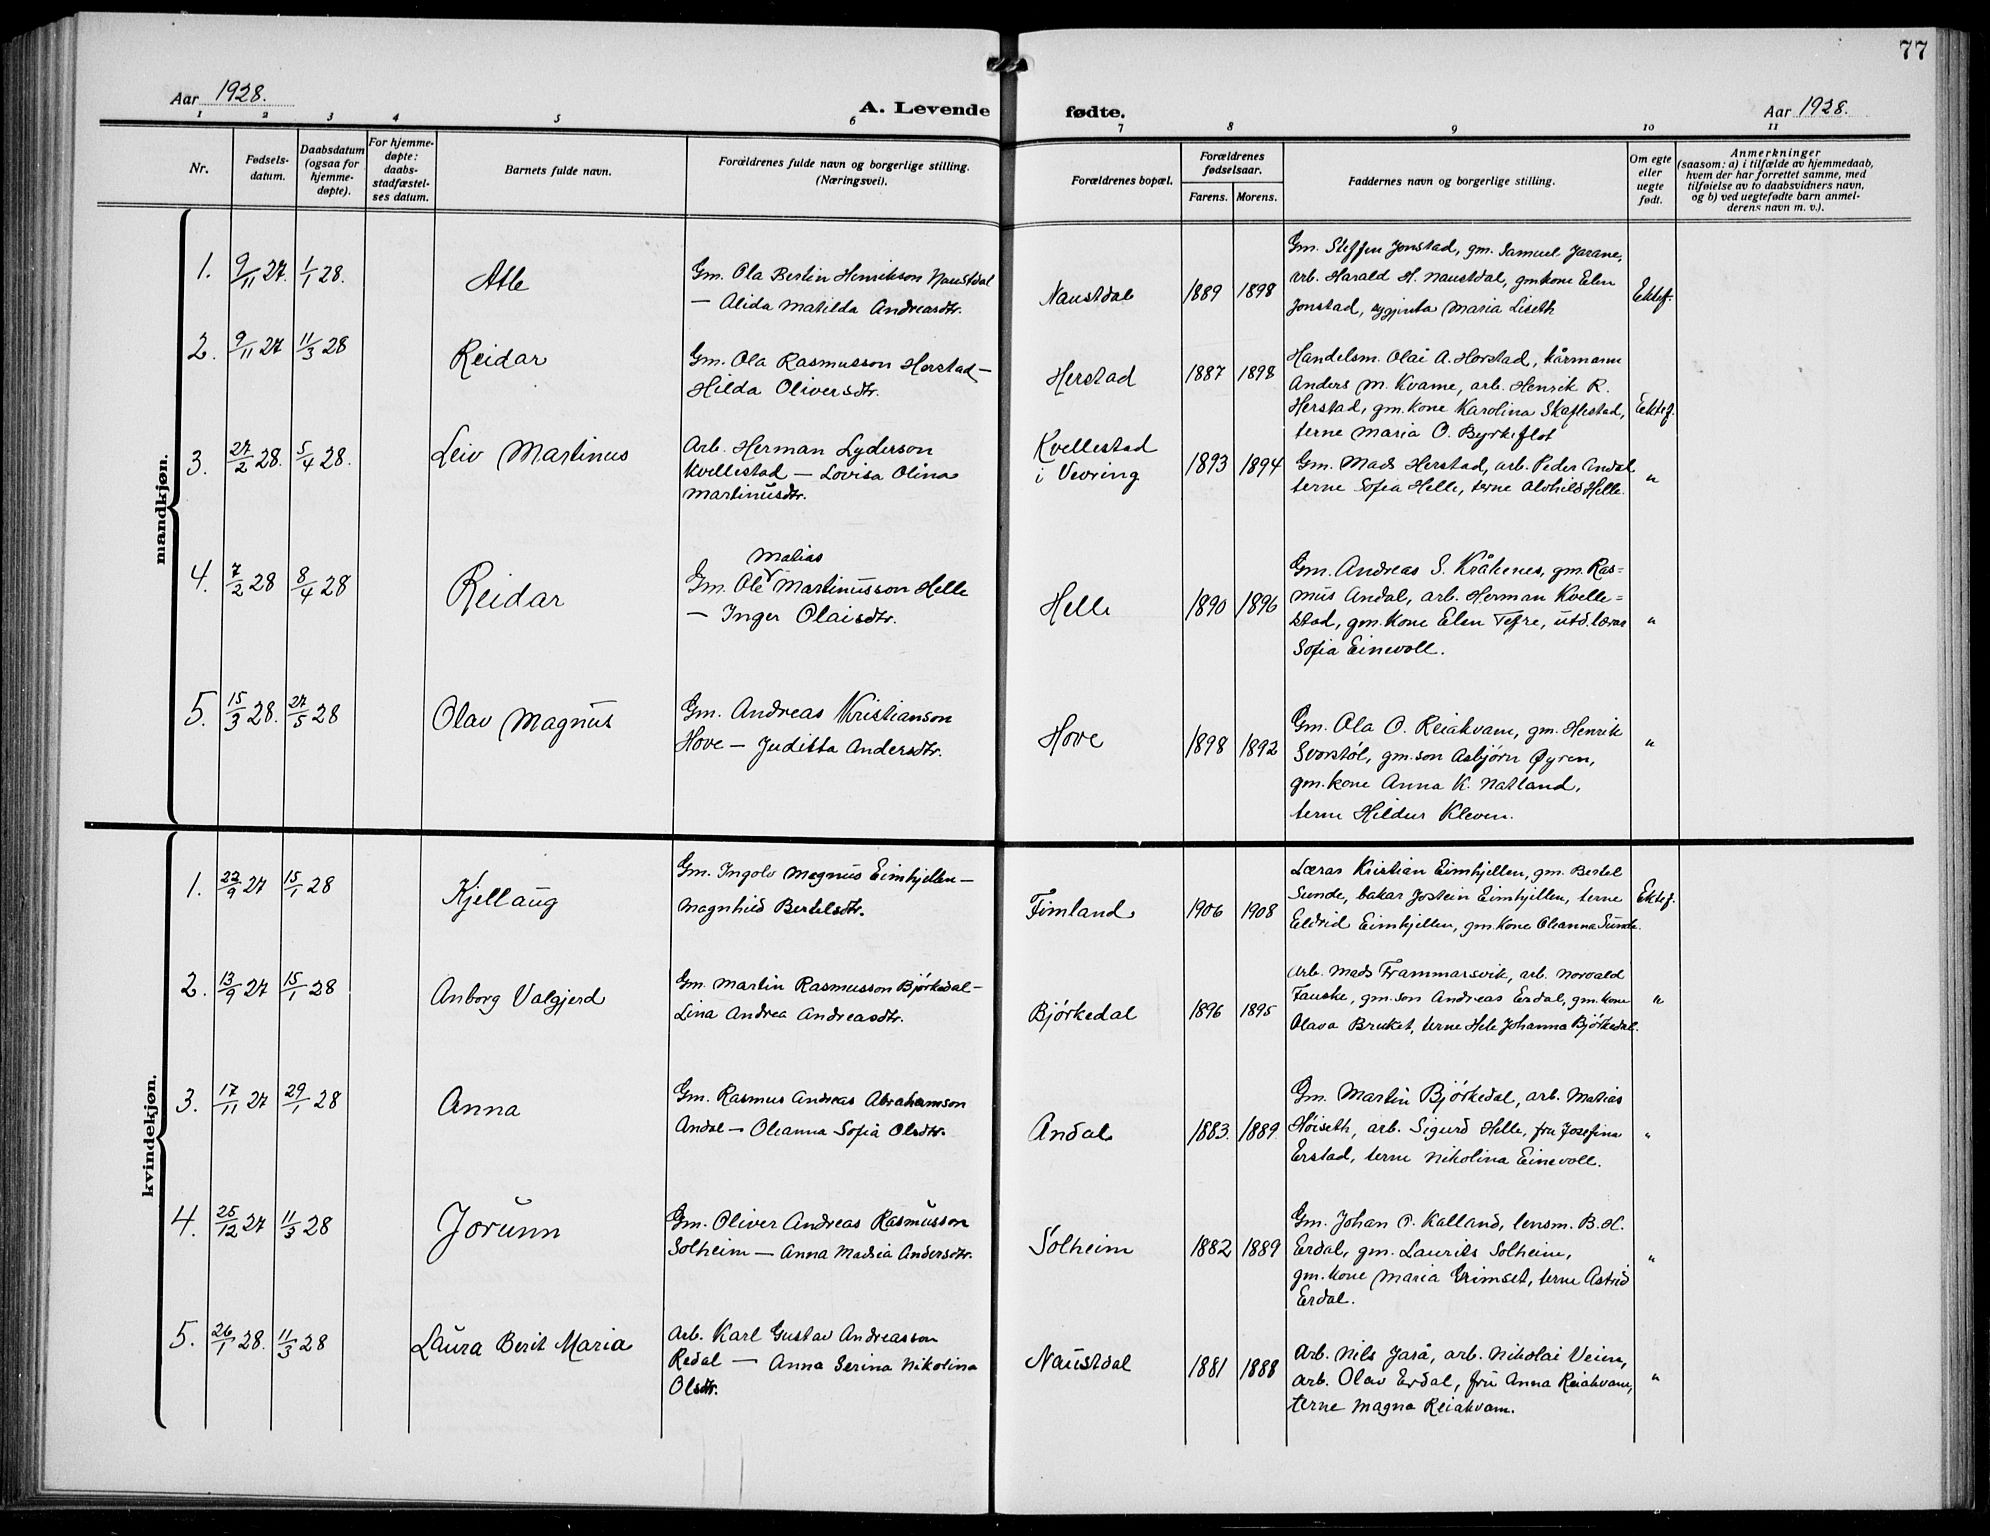 77
Aar 1928.
A. Levende fødte.
Aar 1928.
1 2 3 4 5 6 7 8 9 10 11
Nr.
Fødsels-
datum.
Daabsdatum
(ogsaa for
hjemme-
døpte).
For hjemme-
døpte:
daabs-
stadfæstel-
ses datum.
Barnets fulde navn.
Forældrenes fulde navn og borgerlige stilling.
(Næringsvei).
Forældrenes bopæl.
Forældrenes
fødselsaar.
Farens. Morens.
Faddernes navn og borgerlige stilling.
Om egte
eller
uegte
født.
Anmerkninger
(saasom: a) i tilfælde av hjemmedaab,
hvem der har forrettet samme, med
tilføielse av to daabsvidners navn,
og b) ved uegtefødte barn anmel-
derens navn m. v.).
mandkjøn.
1. 9/11 27. 1/1 28.
Atle
Gm. Ola Bertin Henrikson Naustdal
— Alida Matilda Andreasdtr.
Naustdal
1889 1898
Gm. Steffen Jonstad, gm. Samuel Jarane,
arb. Harald H. Naustdal, gmkone Elen
Jonstad, sygjenta Maria Liseth
Ektef.
2. 9/11 27 11/3 28
Reidar
Gm. Ola Rasmusson Herstad —
Hilda Oliversdtr.
Herstad
1887 1898
Handelsm. Olai A. Horstad, kårmann
Anders M. Kvame, arb. Henrik R.
Herstad, gm. kone Karolina Skaflestad,
terne Maria O. Byrkjeflot
Ektef.
3. 27/2 28. 5/4 28.
Leiv Martinus
Arb. Herman Lyderson
Kvellestad — Lovisa Olina
Martinusdtr.
Kvellestad
i Vevring
1893 1894
Gm. Mads Herstad, arb. Peder Andal
terne Sofia Helle, terne Alvhild Helle.
"
4. 7/2 28 8/4 28
Reidar
Matias
Gm. Ole Martinusson Helle
— Inger Olaisdtr.
Helle
1890 1896
Gm. Andreas S. Kråkenes, gm. Ras=
mus Andal, arb. Herman Kvelle=
stad, gm. kone Elen Tefre, utd. lærar
Sofia Einevoll.
"
5. 15/3 28. 27/5 28
Olav Magnus
Gm. Andreas Kristianson
Hove — Juditta Andersdtr.
Hove
1898 1892
Gm. Ola O. Reiakvam, gm. Henrik
Svorstøl, gm. son Asbjørn Øyren,
gm. kone Anna K. Natland,
terne Hildur Kleven.
"
kvindekjøn.
1. 22/9 27 15/1 28
Kjellaug
Gm. Ingolv Magnus Eimhjellen —
Magnhild Bertelsdtr.
Fimland
1906 1908
Lærar Kristian Eimhjellen, gm. Bertel
Sunde, bakar Jostein Eimhjellen, terne
Eldrid Eimhjellen, gm. kone Oleanna Sunde.
Ektef.
2. 13/9 27 15/1 28
Anborg Valgjerd
Gm. Martin Rasmusson Bjørkedal —
Lina Andrea Andreasdtr.
Bjørkedal
1896 1895
Arb. Mads Frammarsvik, arb. Norvald
Fauske, gm. son Andreas Erdal, gm. kone
Olava Bruket, terne Hele Johanna Bjørkedal.
"
3. 17/11 27 29/1 28
Anna
Gm. Rasmus Andreas Abrahamson
Andal — Oleanna Sofia Olsdtr.
Andal
1883. 1889.
Gm. Martin Bjørkedal, arb. Matias
Høiseth, arb. Sigurd Helle, fru Josefina
Erstad, terne Nikolina Einevoll.
"
4. 25/12 27 11/3 28
Jorunn
Gm. Oliver Andreas Rasmusson
Solheim — Anna Madsia Andersdtr.
Solheim
1882 1889
Gm. Johan O. Kalland, lensm. B. H.
Erdal, gm. Laurits Solheim,
gm. kone Maria Grimset, terne Astrid
Erdal.
"
5. 26/1 28. 11/3 28
Laura Berit Maria
Arb. Karl Gustav Andreasson
Redal — Anna Serina Nikolina
Olsdtr.
Naustdal
1881 1888
Arb. Nils Jarå, arb. Nikolai Veien,
arb. Olav Erdal, fru Anna Reiakvam,
terne Magna Reiakvam.
"